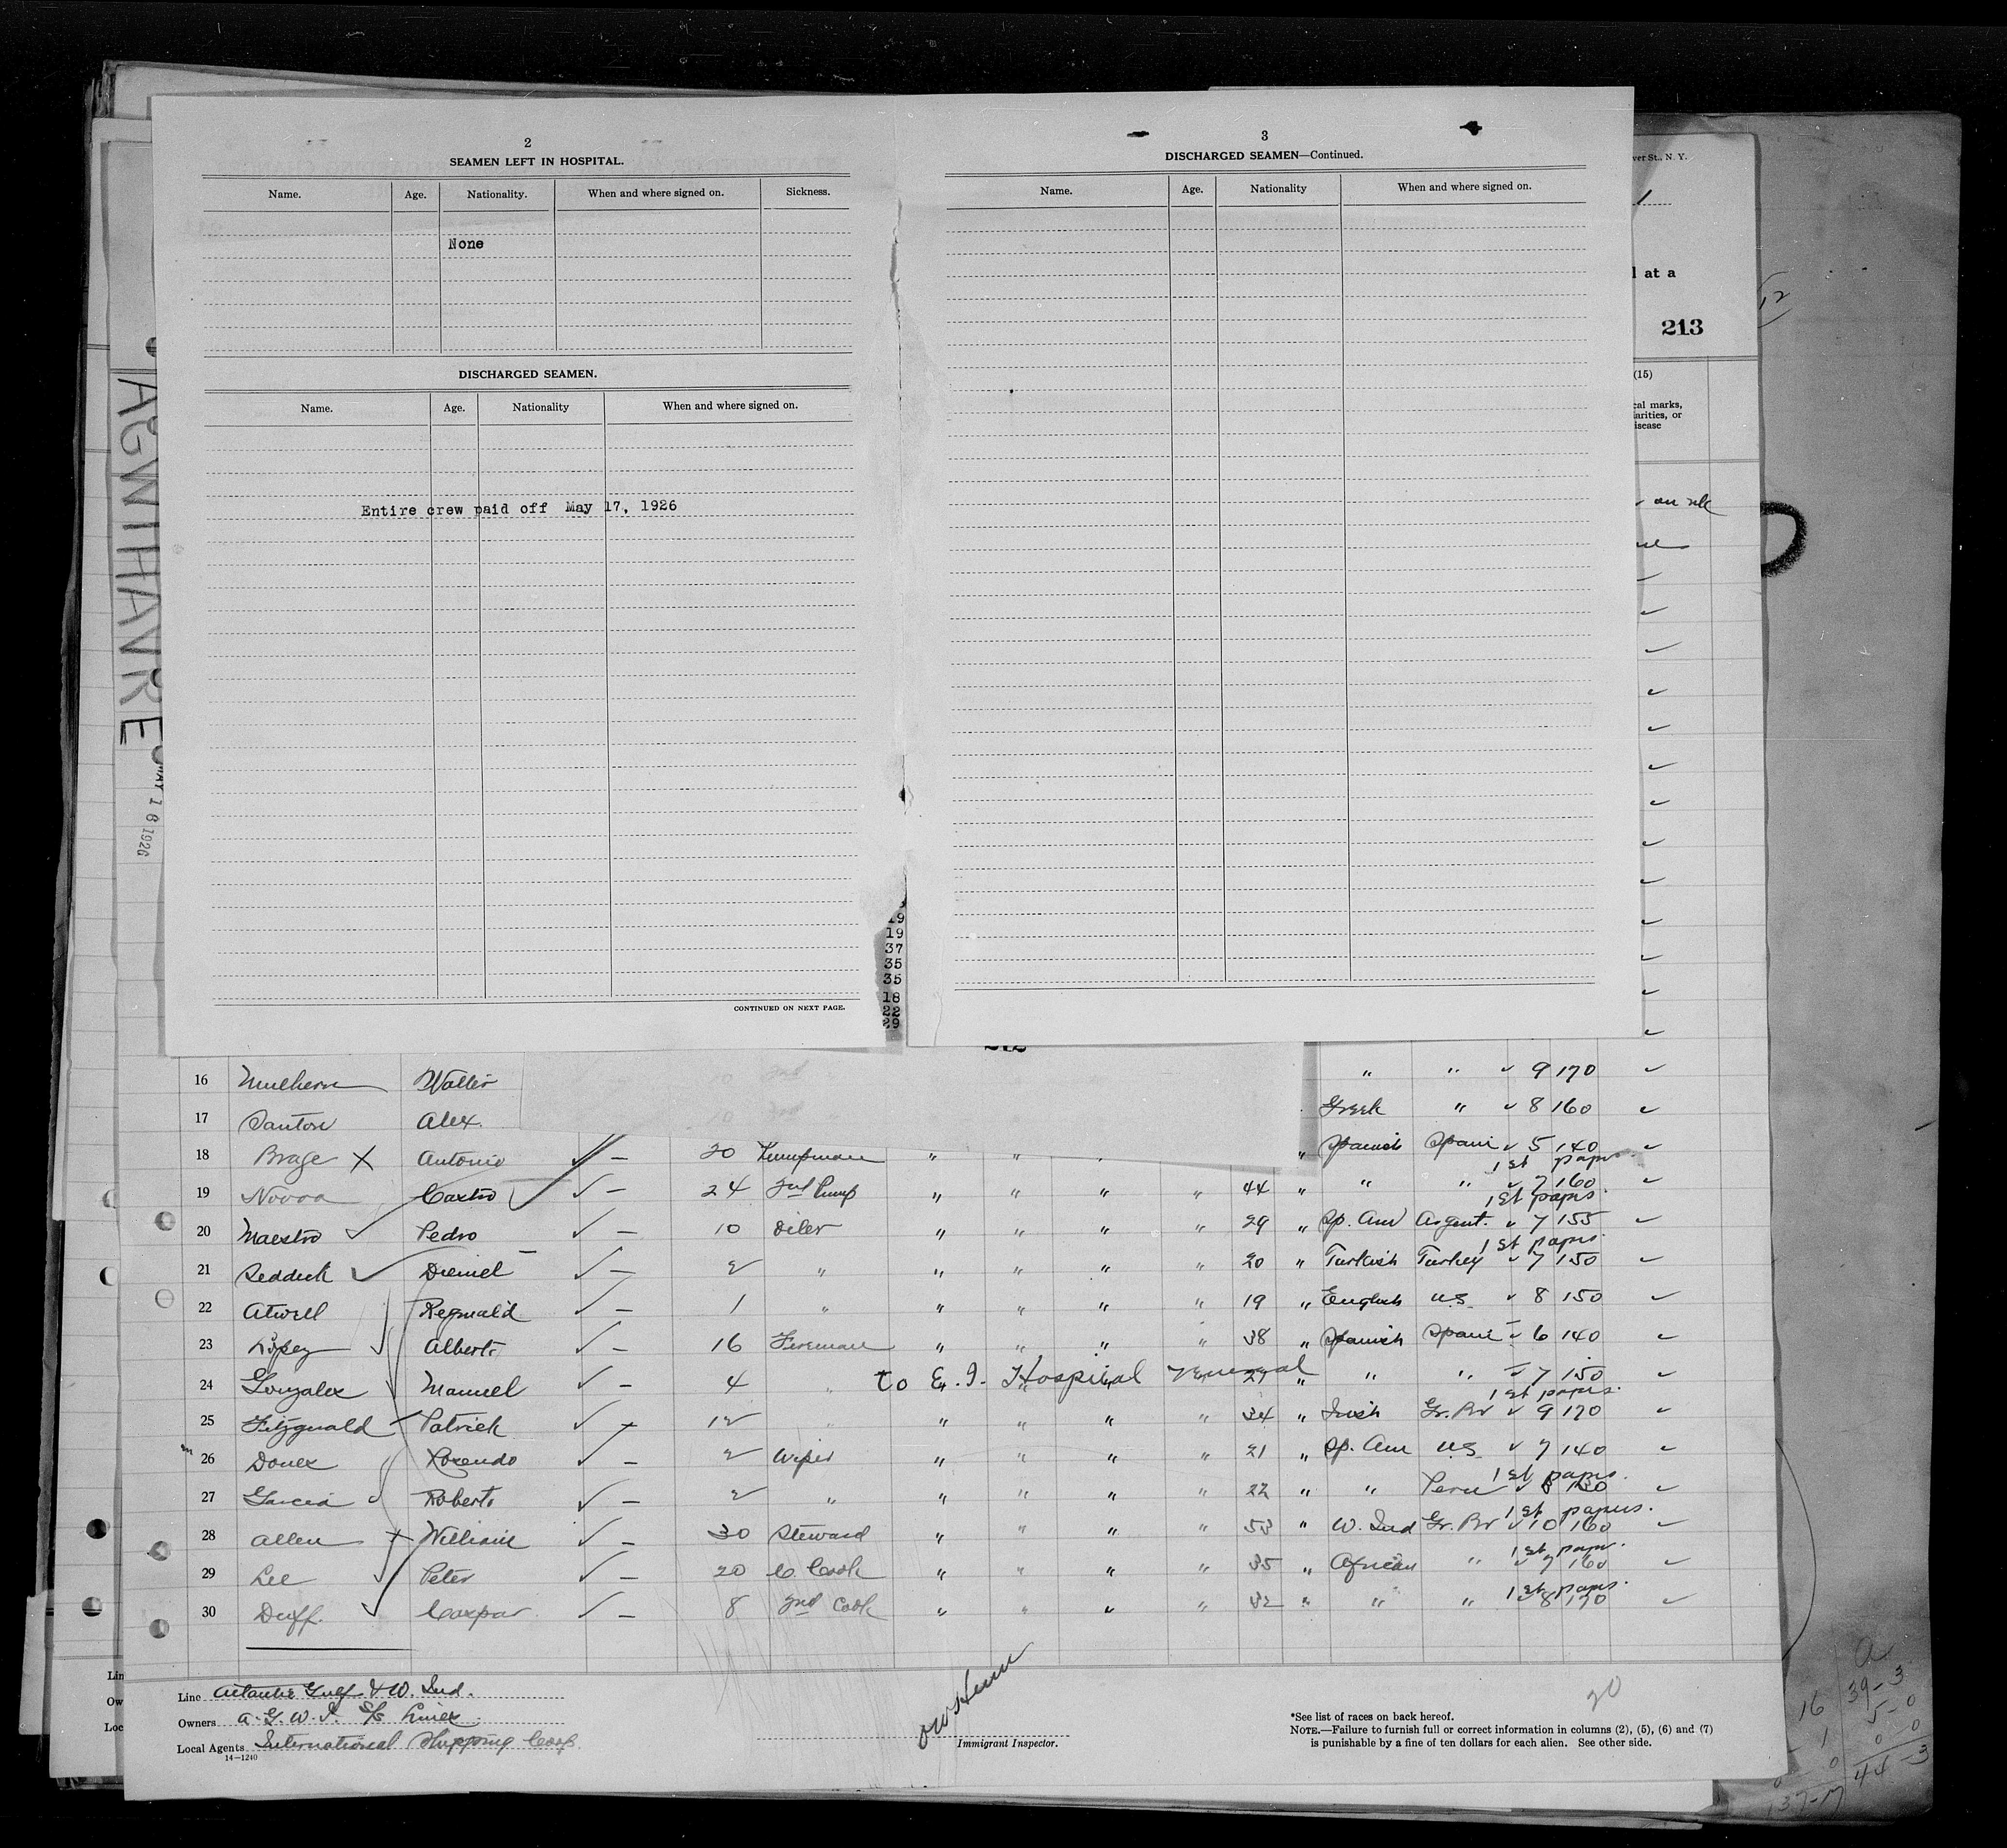 2
SEAMEN LEFT IN HOSPITAL.
Name. Age. Nationality. When and where signed on. Sickness.
None
DISCHARGED SEAMEN.
Name. Age. Nationality When and where signed on.
Entire crew paid off May 17, 1926
CONTINUED ON NEXT PAGE.
3
DISCHARGED SEAMEN—Continued.
Name. Age. Nationality When and where signed on.
ver St., N. Y.
1
l at a
213
(15)
cal marks,
arities, or
isease
12
AGWIHAVRE
MAY 16 1926
19
19
37
35
35
18
22
29
16 Mulhern Walter " " 9 170
17 Santon Alex. Greek " 8 160
18 Brage X Antonio — 20 Pumpman " " " Spanish Spain 5 140
1st papers.
19 Novoa Castro — 24 2nd Pump " " " " 44 " " " 7 160
1st papers.
20 Maestro Pedro — 10 Oiler " " " " 29 " Sp. Am Argent. 7 155
1st papers.
21 Seddick Diemel — 2 " " " " " 20 " Turkish Turkey 7 150
22 Atwell Reginald — 1 " " " " " 19 " English US 8 150
23 Lopez Alberto — 16 Fireman " " " " 38 " Spanish Spain 6 140
24 Gonzalez Manuel — 4 " to E. I. Hospital Venereal 27 " " " 7 150
1st papers.
25 Fitzgerald Patrick 12 " " " " " 34 " Irish Gr. Br 9 170
26 Donez Rosendo — 2 Wiper " " " " 21 " Sp. Am US 7 140
1st papers.
27 Garcia Roberto — 2 " " " " " 22 " " Peru 8 130
1st papers.
28 Allen William — 30 Steward " " " " 53 " W. Ind Gr. Br 10 160
1st papers.
29 Lee Peter — 20 C. Cook " " " " 35 " African " 7 160
1st papers.
30 Duff. Caspar — 8 2nd Cook " " " " 32 " " " 8 170
Line Atlantic Gulf & W. Ind.
Owners A. G. W. I. S/S Lines
Local Agents International Shipping Corp.
14—1240
Immigrant Inspector.
20
*See list of races on back hereof.
NOTE.—Failure to furnish full or correct information in columns (2), (5), (6) and (7)
is punishable by a fine of ten dollars for each alien. See other side.
Lin
Ow
Loc
a
39-3
16 5-0
1 0 0
0 44-3
137-17